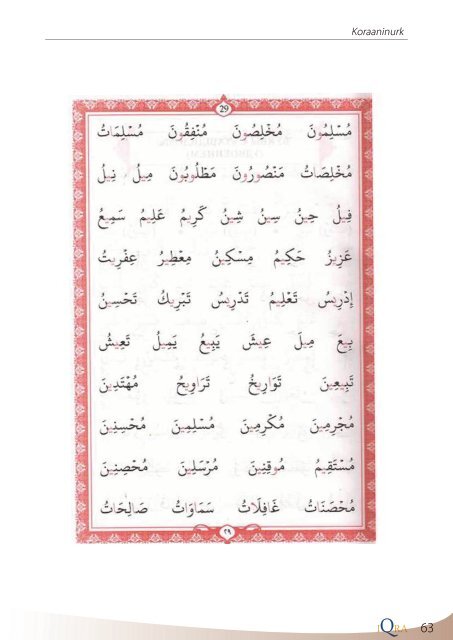 Koraaninurk
29
مُسْلِمُونَ مُخْلِصُونَ مُنْفِقُونَ مُسْلِمَاتُ
مُخْلِصَاتُ مَنْصُورُونَ مَطْلُوبُونَ مِيلُ نِيلُ
فِيلُ حِينُ سِينُ شِينُ كَرِيمُ عَلِيمُ سَمِيعُ
عَزِيزُ حَكِيمُ مِسْكِينُ مِعْطِيرُ عِفْرِيتُ
إِدْرِيسُ تَعْلِيمُ تَدْرِيسُ تَبْرِيكُ تَحْسِينُ
بِيعَ مِيلَ عِيشَ يَبِيعُ يَمِيلُ تَعِيشُ
تَبِيعِينَ تَوَارِيخُ تَرَاوِيحُ مُهْتَدِينَ
مُجْرِمِينَ مُكْرِمِينَ مُسْلِمِينَ مُحْسِنِينَ
مُسْتَقِيمُ مُوقِنِينَ مُرْسَلِينَ مُحْصِنِينَ
مُحْصَنَاتُ غَافِلَاتُ سَمَاوَاتُ صَالِحَاتُ
٢٩
IQRA 63